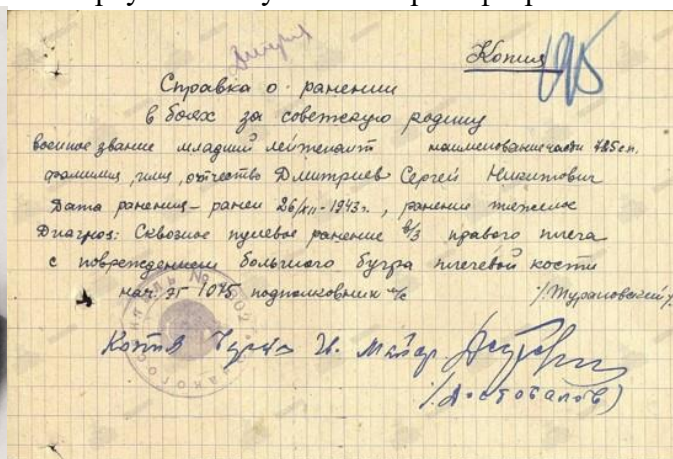 Копия
195
Справка о ранении
в боях за советскую родину
военное звание младший лейтенант наименование части 785 сп.
фамилия, имя, отчество Дмитриев Сергей Никитович
Дата ранения – ранен 26/XII-1943г., ранение тяжелое
Диагноз: Сквозное пулевое ранение в/3 правого плеча
с повреждением большого бугра плечевой кости
нач. ЭГ 1075 подполковник м/с /Мурановский/
Копия верна
Майор
/Достовалов)